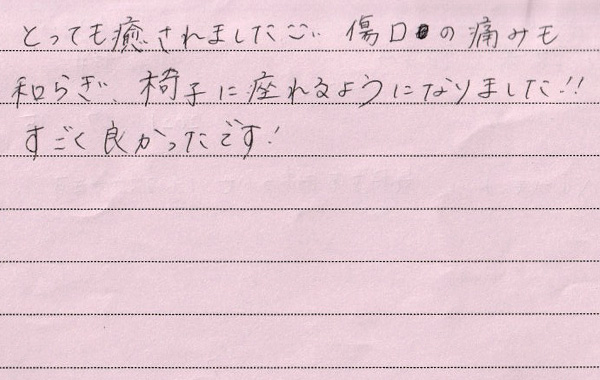 とっても癒されました(^^) 傷口の痛みも
和らぎ、椅子に座れるようになりました!!
すごく良かったです!